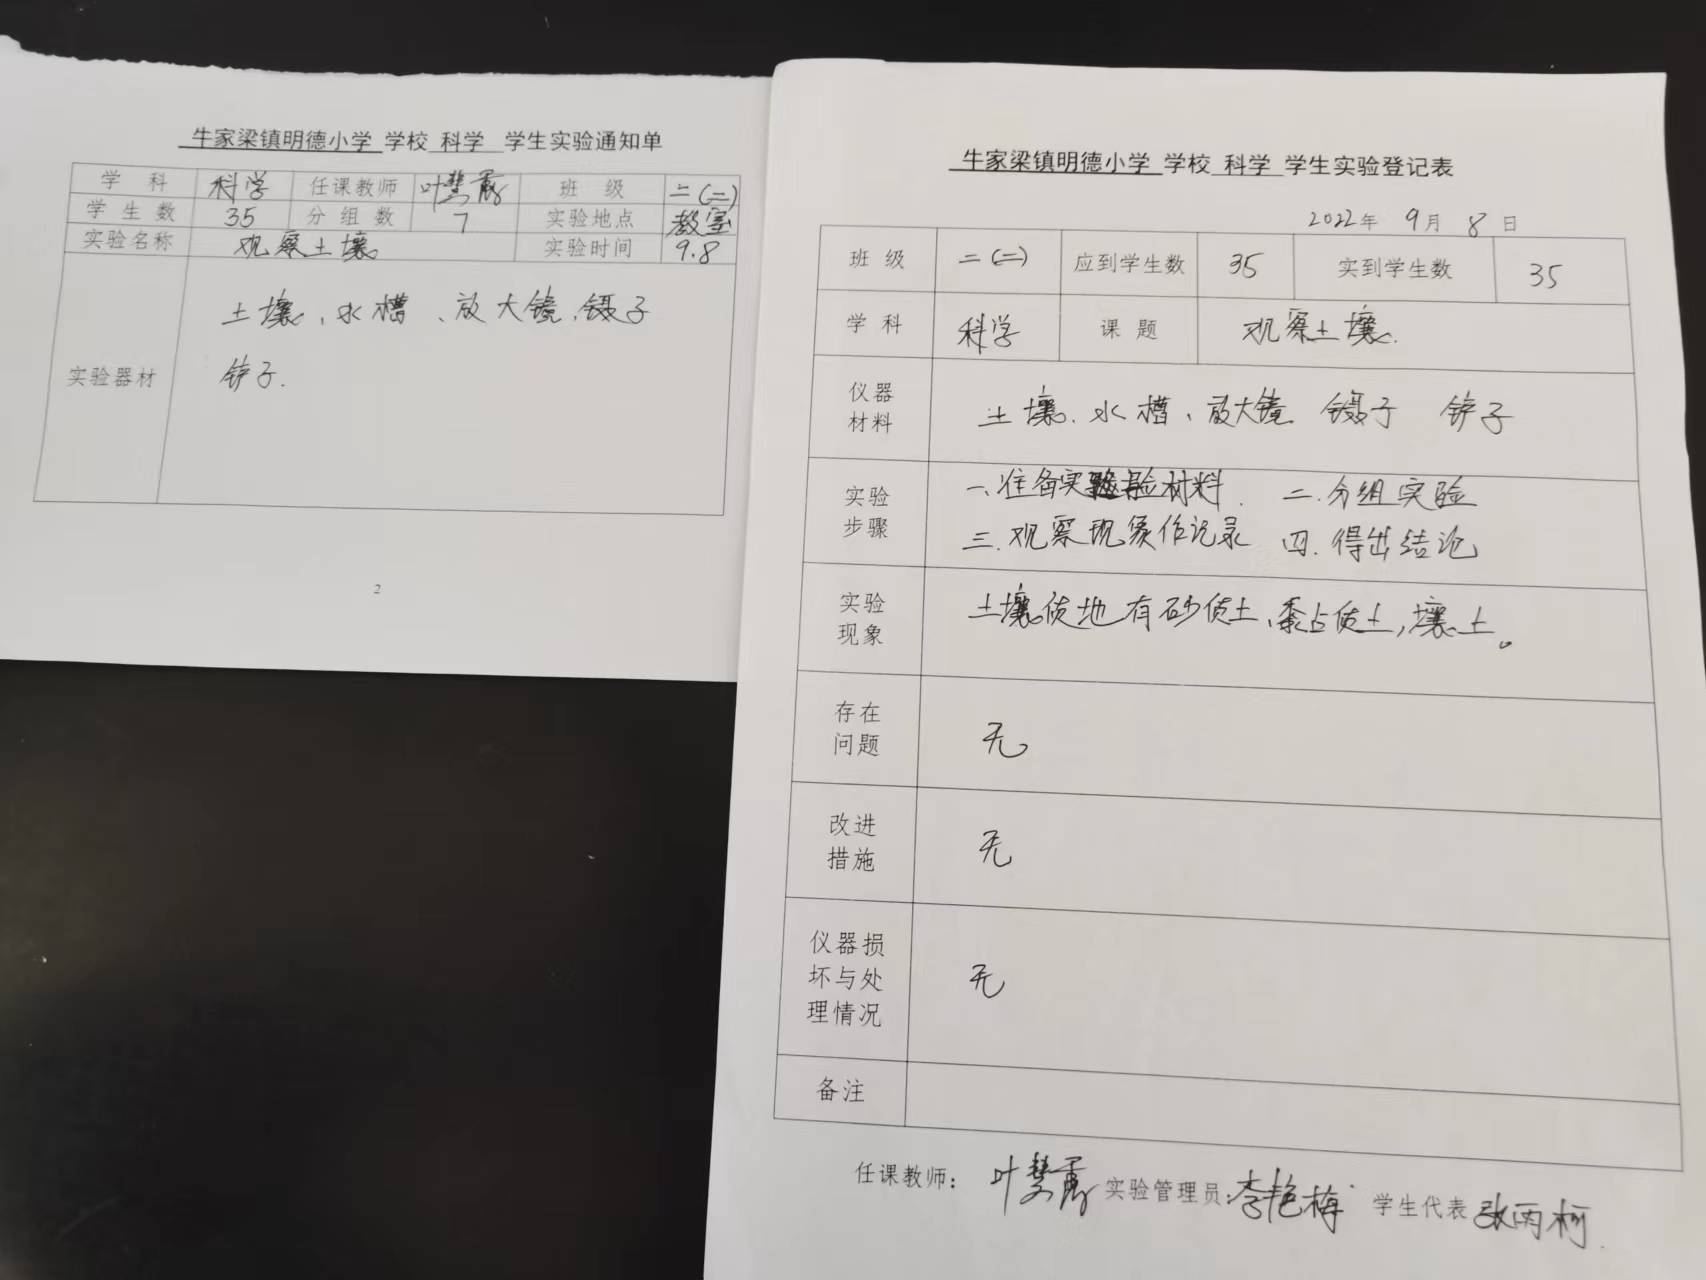 牛家梁镇明德小学 学校 科学 学生实验通知单
学 科 科学 任课教师 班 级 二(二)
学 生 数 35 分 组 数 7 实验地点 教室
实验名称 观察土壤 实验时间 9.8
实验器材
土壤、水槽、放大镜、镊子
铲子.
2
牛家梁镇明德小学 学校 科学 学生实验登记表
2022年 9月 8日
班 级 二(二) 应到学生数 35 实到学生数 35
学 科 科学 课 题 观察土壤.
仪器
材料
土壤、水槽、放大镜 镊子 铲子
实验
步骤
一、准备实验材料. 二.分组实验
三.观察现象作记录 四.得出结论
实验
现象
土壤质地有砂质土、黏质土,壤土。
存在
问题
无
改进
措施
无
仪器损
坏与处
理情况
无
备注
任课教师: 实验管理员:李艳梅 学生代表